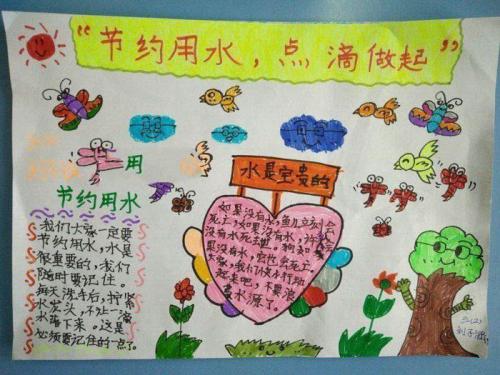 “节约用水，点滴做起”
用
节约用水
我们大家一定要
节约用水，水是
很重要的，我们
随时要记住。
每天洗手后，拧紧
水龙头，不让一滴
水落下来。这是
必须要记住的一点了。
水是宝贵的
如果没有水，鱼儿立刻会
死亡；如果没有水，
没有水死去。狗如
果没有水，它也会死亡。
大家，我们快行动
起来吧，不要浪
费水源了。
三(2)